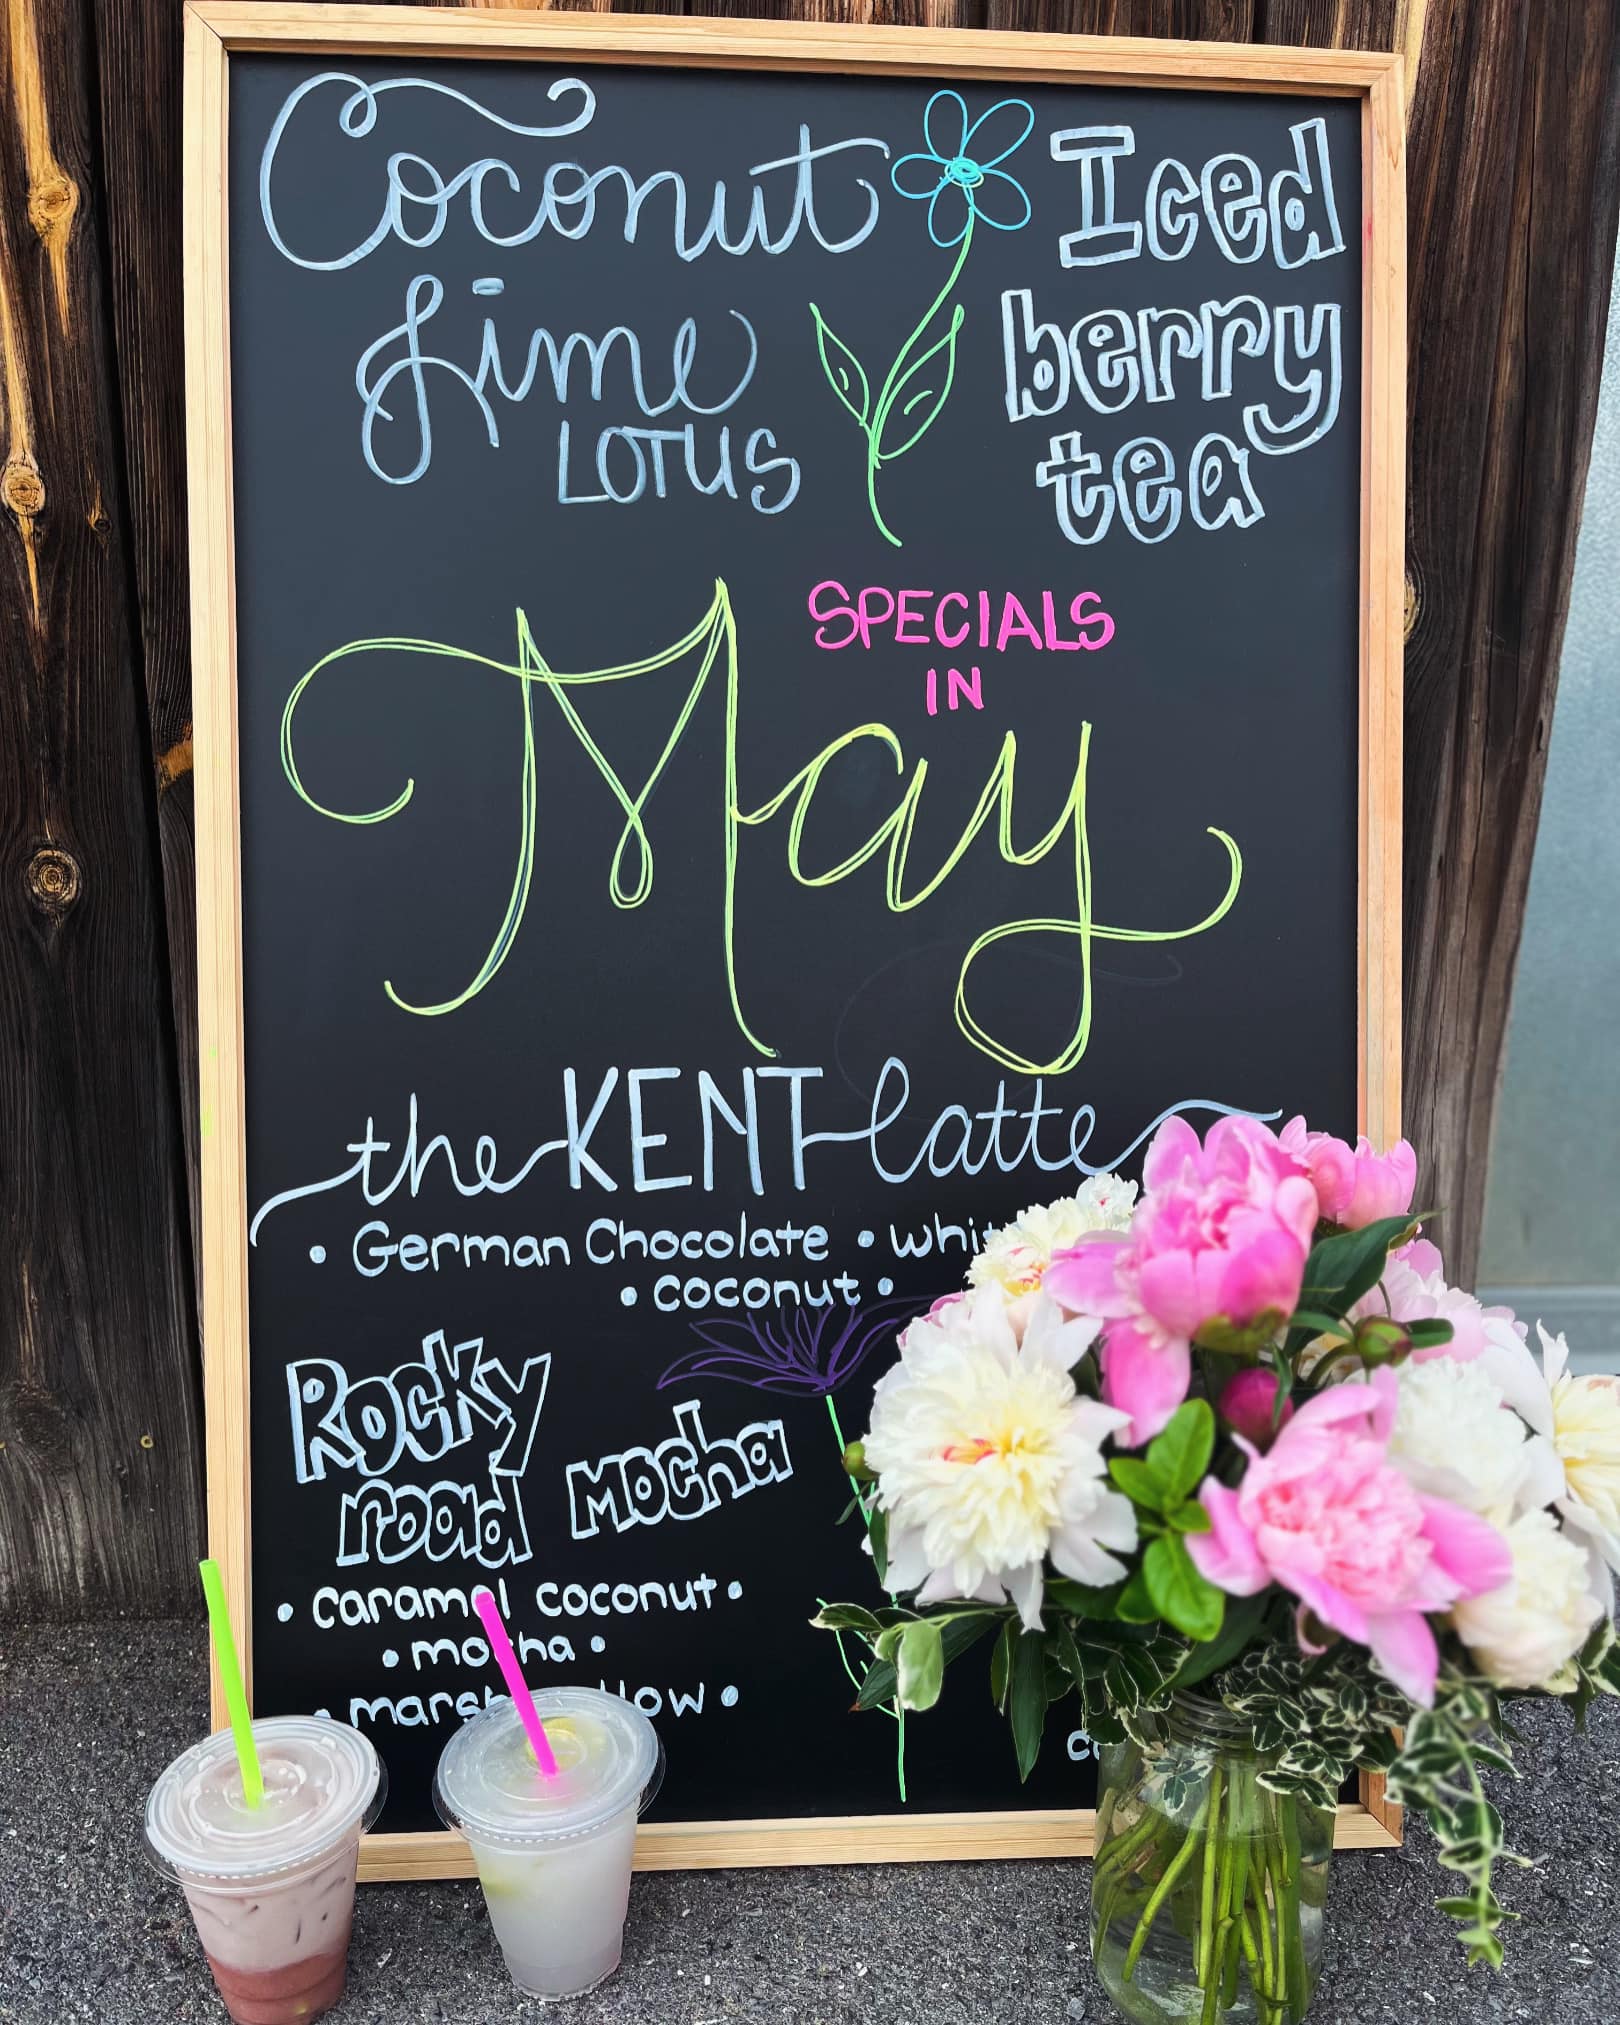 Coconut
Lime
LOTUS
Iced
berry
tea
SPECIALS
IN
May
the KENT latte
• German Chocolate •
• coconut •
Rocky
road
Mocha
• caramel coconut •
• mocha •